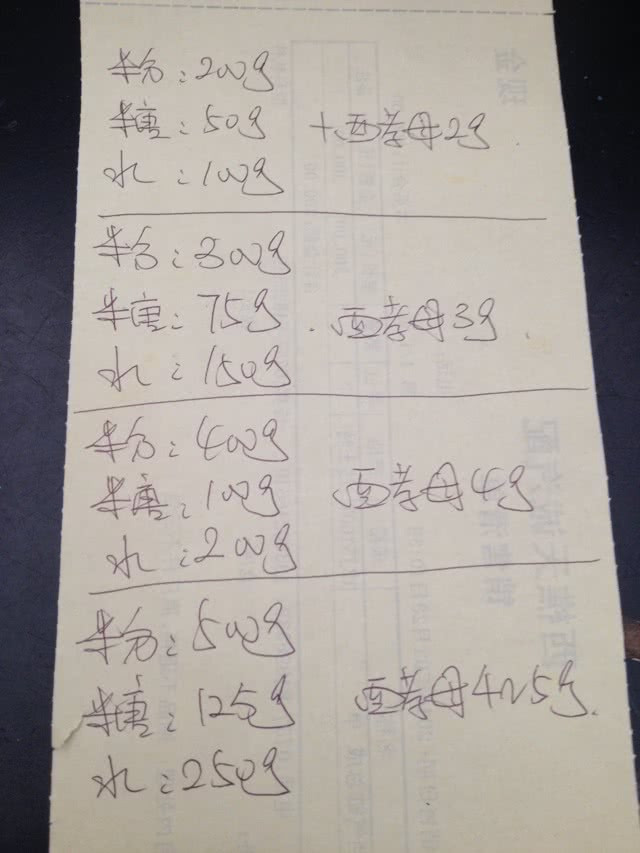 粉：200g
糖：50g + 酉孝母2g.
水：100g
粉：300g
糖：75g. 酉孝母3g.
水：150g
粉：400g
糖：100g 酉孝母4g
水：200g
粉：500g
糖：125g 酉孝母4~5g.
水：250g